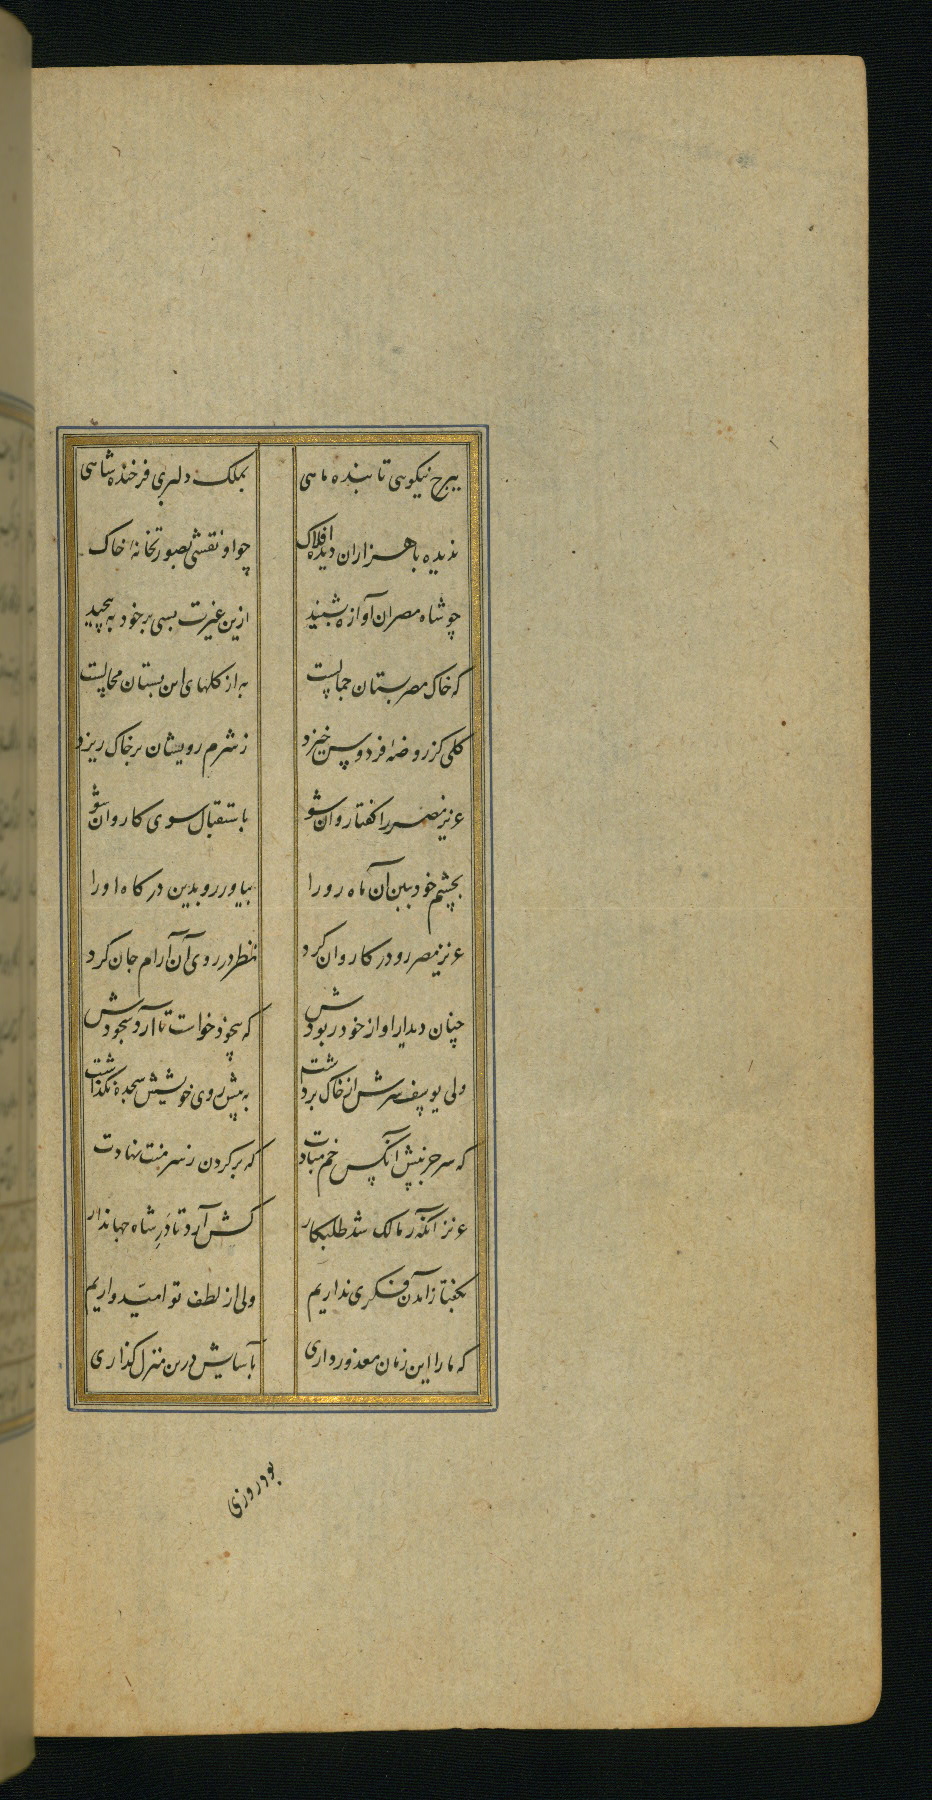 ببرج نیکویی تابنده ماهی بملک دلبری فرخنده شاهی
ندیده با هزاران دیده افلاک چو او نقشی بصورتخانهٔ خاک
چو شاه مصر ان آوازه بشنید ازین غیرت بسی بر خود به پیچید
که خاک مصر بستان جمالست به از کلهای این بستان محالست
کلی کز روضهٔ فردوس خیزد ز شرم رویشان بر خاک ریزد
عزیز مصر را کفتا روان شو باستقبال سوی کاروان شو
بچشم خود ببین آن ماه رو را بیاور رو بدین درکاه او را
عزیز مصر رو در کاروان کرد نظر در روی آن آرام جان کرد
چنان دیدار او از خود ربودش که بیخود خواست تا آرد سجودش
ولی یوسف سرش از خاک برداشت به پیش روی خویشش سجده نکذاشت
که سر جز پیش آنکس خم مبادت که بر کردن ز سر منت نهادت
عزیز آنکه ز مالک شد طلبکار کش آرد تا درِ شاه جهاندار
بکفتا ز آمدن فکری نداریم ولی از لطف تو امیّدواریم
که ما را این زمان معذور داری بآسایش درین منزل کذاری
بود روزی